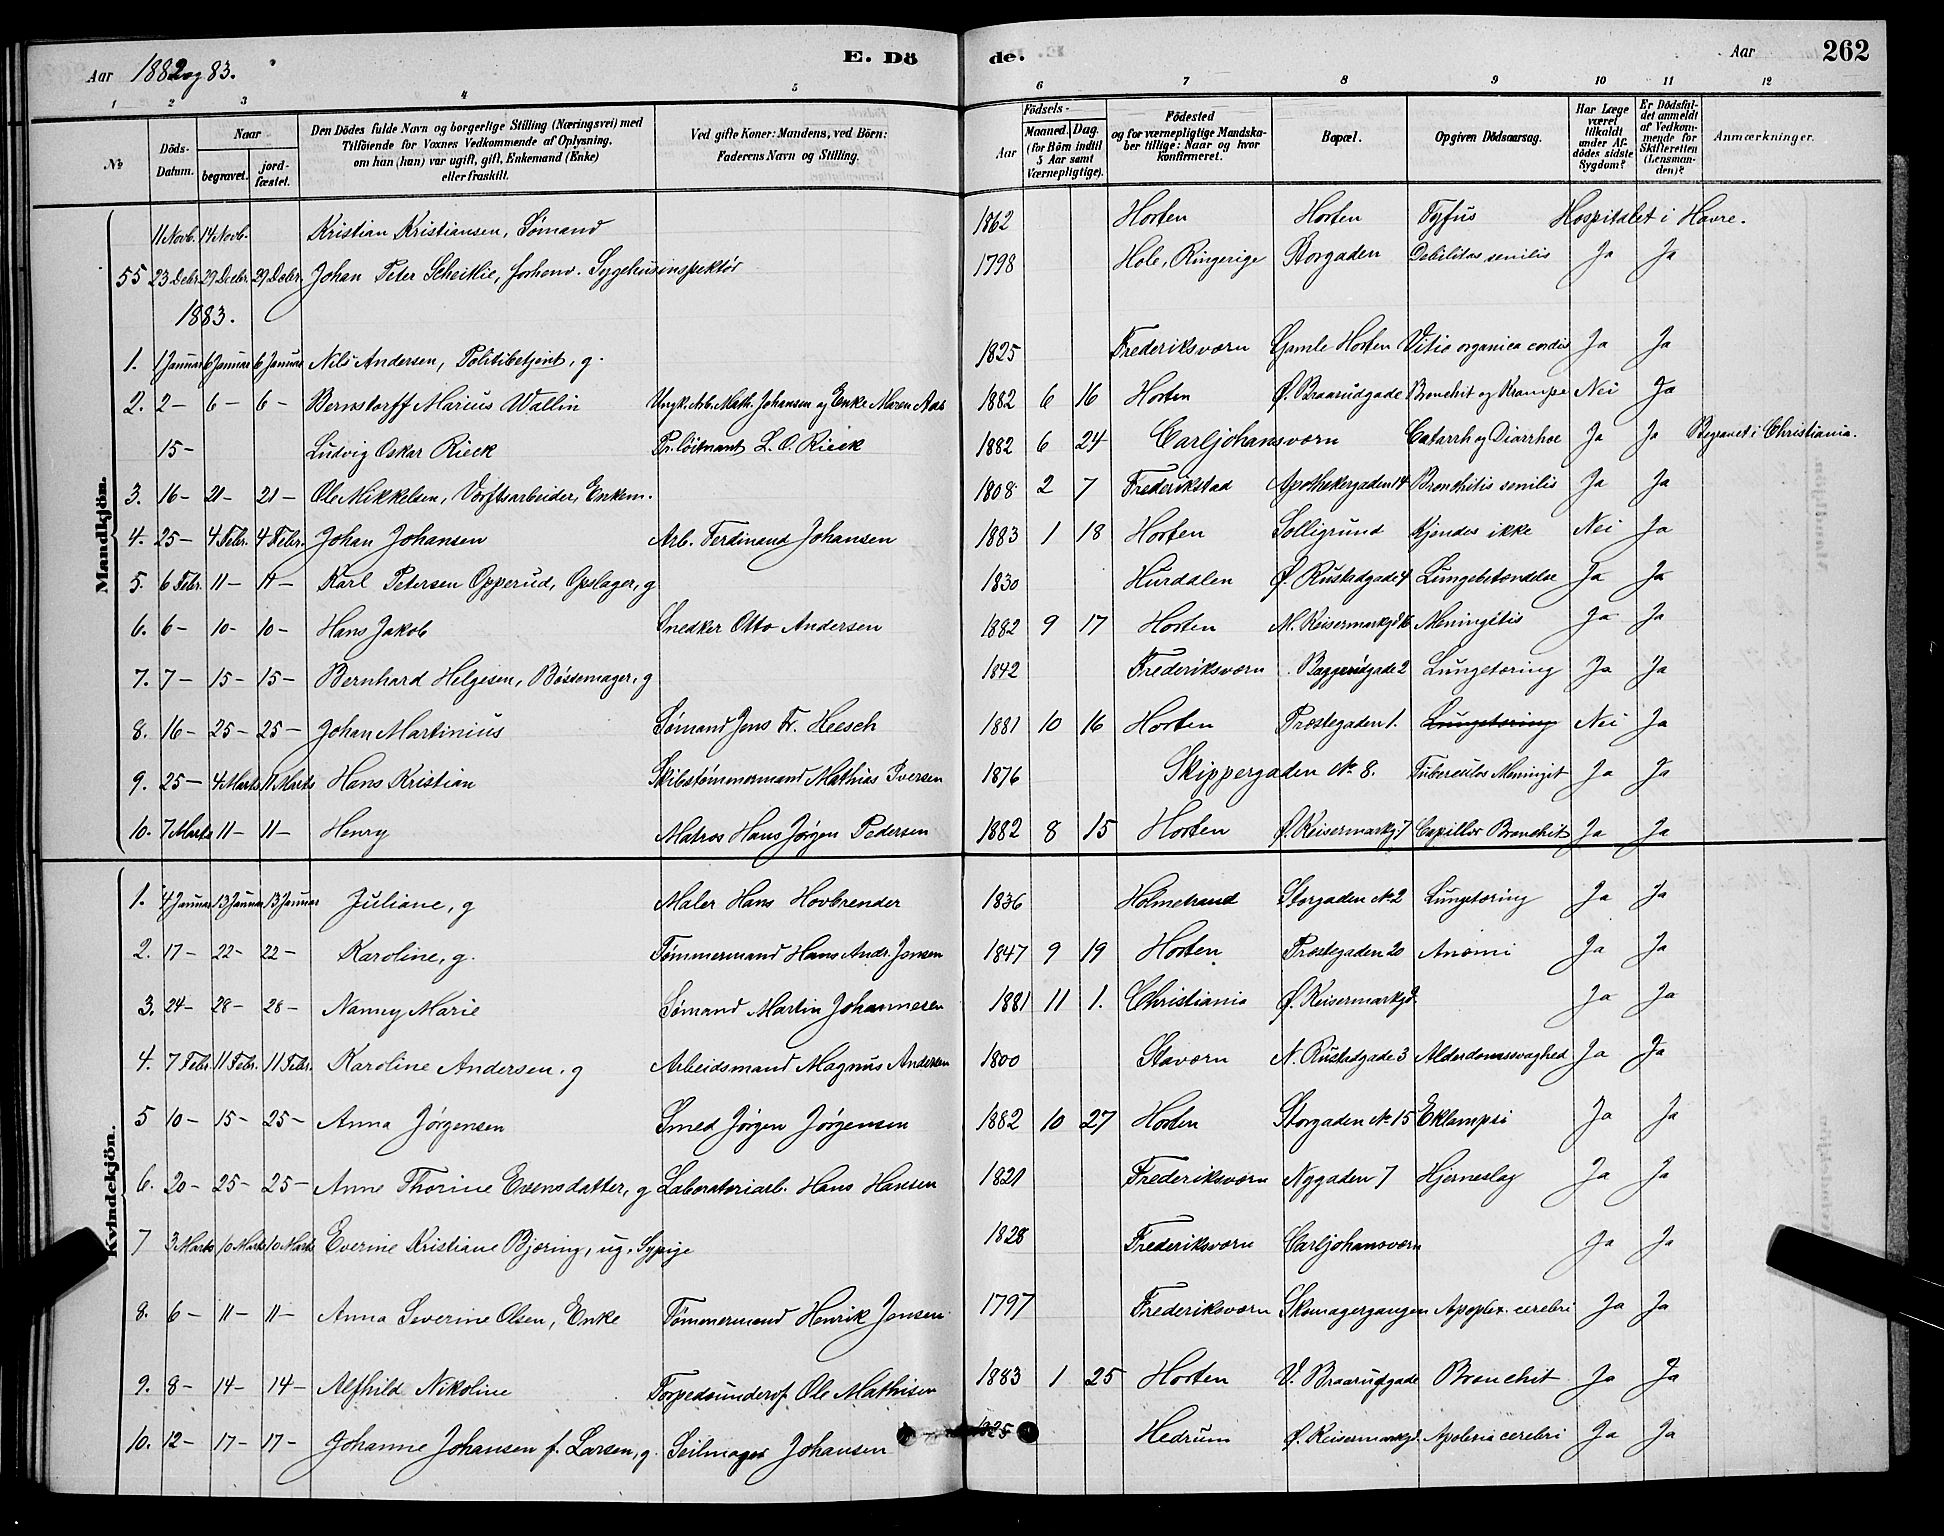 Aar 1882 og 83. E. Dö de. Aar 262
1 2 3 4 5 6 7 8 9 10 11 12
№ Döds-Datum. Naar begravet. jordfæstet. Den Dödes fulde Navn og borgerlige Stilling (Næringsvei) med Tilföiende for Voxnes Vedkommende af Oplysning, om han (hun) var ugift, gift, Enkemand (Enke) eller fraskilt. Ved gifte Koner: Mandens, ved Börn: Faderens Navn og Stilling. Födsels- Aar Maaned. Dag. (for Börn indtil 5 Aar samt Værnepligtige). Födested og for værnepligtige Mandskaber tillige: Naar og hvor konfirmeret. Bopæl. Opgiven Dödsaarsag. Har Læge været tilkaldt under Afdödes sidste Sygdom? Er Dödsfaldet anmeldt af Vedkommende for Skifteretten (Lensmanden)? Anmærkninger.
Mandkjön.
11 Novb. 14 Novb. Kristian Kristiansen, Sømand 1862 Horten Horten Tyfus Hospitalet i Havre.
55 23 Debr. 29 Decbr. 29 Decbr. Johan Peter Scheitlie, forhenv. Sygehusinspektør 1798 Hole, Ringerige Storgaden Debilitas senilis Ja Ja
1883.
1. 1 Januar 6 Januar 6 Januar Nils Andersen, Politibetjent, g. 1825 Frederiksværn Gamle Horten Vitio organica cordis Ja Ja
2. 2 - 6 - 6 - Bernstorff Marius Wallin Ungk. Arb. Math. Johansen og Enke Maren Aas 1882 6 16 Horten Ø. Braarudgade Bronchit og Krampe Nei Ja
15 - Ludvig Oskar Rieck Pr. löitnant L. O. Rieck 1882 6 24 Carljohansværn Catarrh og Diarrhoe Ja Ja Begravet i Christiania.
3. 16 - 21 - 21 - Ole Mikkelsen, Værftsarbeider, Enkem. 1808 2 7 Frederikstad Apothekergaden 14 Bronchitis senilis Ja Ja
4. 25 - 4 Febr. 4 Febr. Johan Johansen Arb. Ferdinand Johansen 1883 1 18 Horten Solligrund Kjendes ikke Nei Ja
5. 6 Febr. 11 - 11 - Karl Petersen Opperud, Opslager, g 1830 Hurdalen Ø. Rustadgade 4 Lungebetændelse Ja Ja
6. 6 - 10 - 10 - Hans Jakob Snedker Otto Andersen 1882 9 17 Horten M. Keisermarkgd 16 Meningitis Ja Ja
7. 7 - 15 - 15 - Bernhard Helgesen, Bøssemager, g 1842 Frederiksværn Baggerudgade 2 Lungetæring Ja Ja
8. 16 - 25 - 25 - Johan Martinius Sømand Jens Fr. Heesch 1881 10 16 Horten Præstegaden 1. Lungetæring Nei Ja
9. 25 - 4 Marts 11 Marts Hans Kristian Skibstømmermand Mathias Iversen 1876 Skippergaden № 8. Tuberculos Meningit Ja Ja
10. 7 Marts 11 - 11 - Henry Matros Hans Jørgen Pedersen 1882 8 15 Horten Ø. Keisermarkg. 7 Capillær Bronchit Ja Ja
Kvindekjön.
1. 4 Januar 13 Januar 13 Januar Juliane, g Maler Hans Hovbrender 1836 Holmestrand Storgaden № 2 Lungetæring Ja Ja
2. 17 - 22 - 22 - Karoline, g. Tømmermand Hans Andr. Jensen 1847 9 19 Horten Præstegaden 20 Anæmi Ja Ja
3. 24 - 28 - 28 - Nanny Marie Sømand Martin Johannesen 1881 11 1. Christiania Ø. Keisermarkgd. Ja Ja
4. 7 Febr 11 Febr. 11 Febr. Karoline Andersen, g Arbeidsmand Magnus Andersen 1800 Stavern N. Rustadgade 3 Alderdomssvaghed Ja Ja
5 10 - 15 - 25 - Anna Jørgensen Smed Jørgen Jørgensen 1882 10 27 Horten Storgaden № 15 Eklampsi Ja Ja
6. 20 - 25 - 25 - Anne Thorine Evensdatter, g Laboratoriarb. Hans Hansen 1821 Frederiksværn Nygaden 7 Hjerneslag Ja Ja
7 3 Marts 10 Marts 10 Marts Everine Kristiane Bjæring, ug. Sypige 1828 Frederiksværn Carljohansværn Ja Ja
8. 6 - 11 - 11 - Anna Severine Olsen, Enke Tømmermand Henrik Jensen 1797 Frederiksværn Skomagergangen Apoplex. cerebri Ja Ja
9. 8 - 14 - 14 - Alfhild Nikoline Torpedounderof. Ole Mathisen 1883 1 25 Horten V. Braarudgade Bronchit Ja Ja
10. 12 - 17 - 17 - Johanne Johansen f. Larsen, g. Seilmager Johansen 1825 Hedrum Ø. Keisermarkgd. Apolexia cerebri Ja Ja